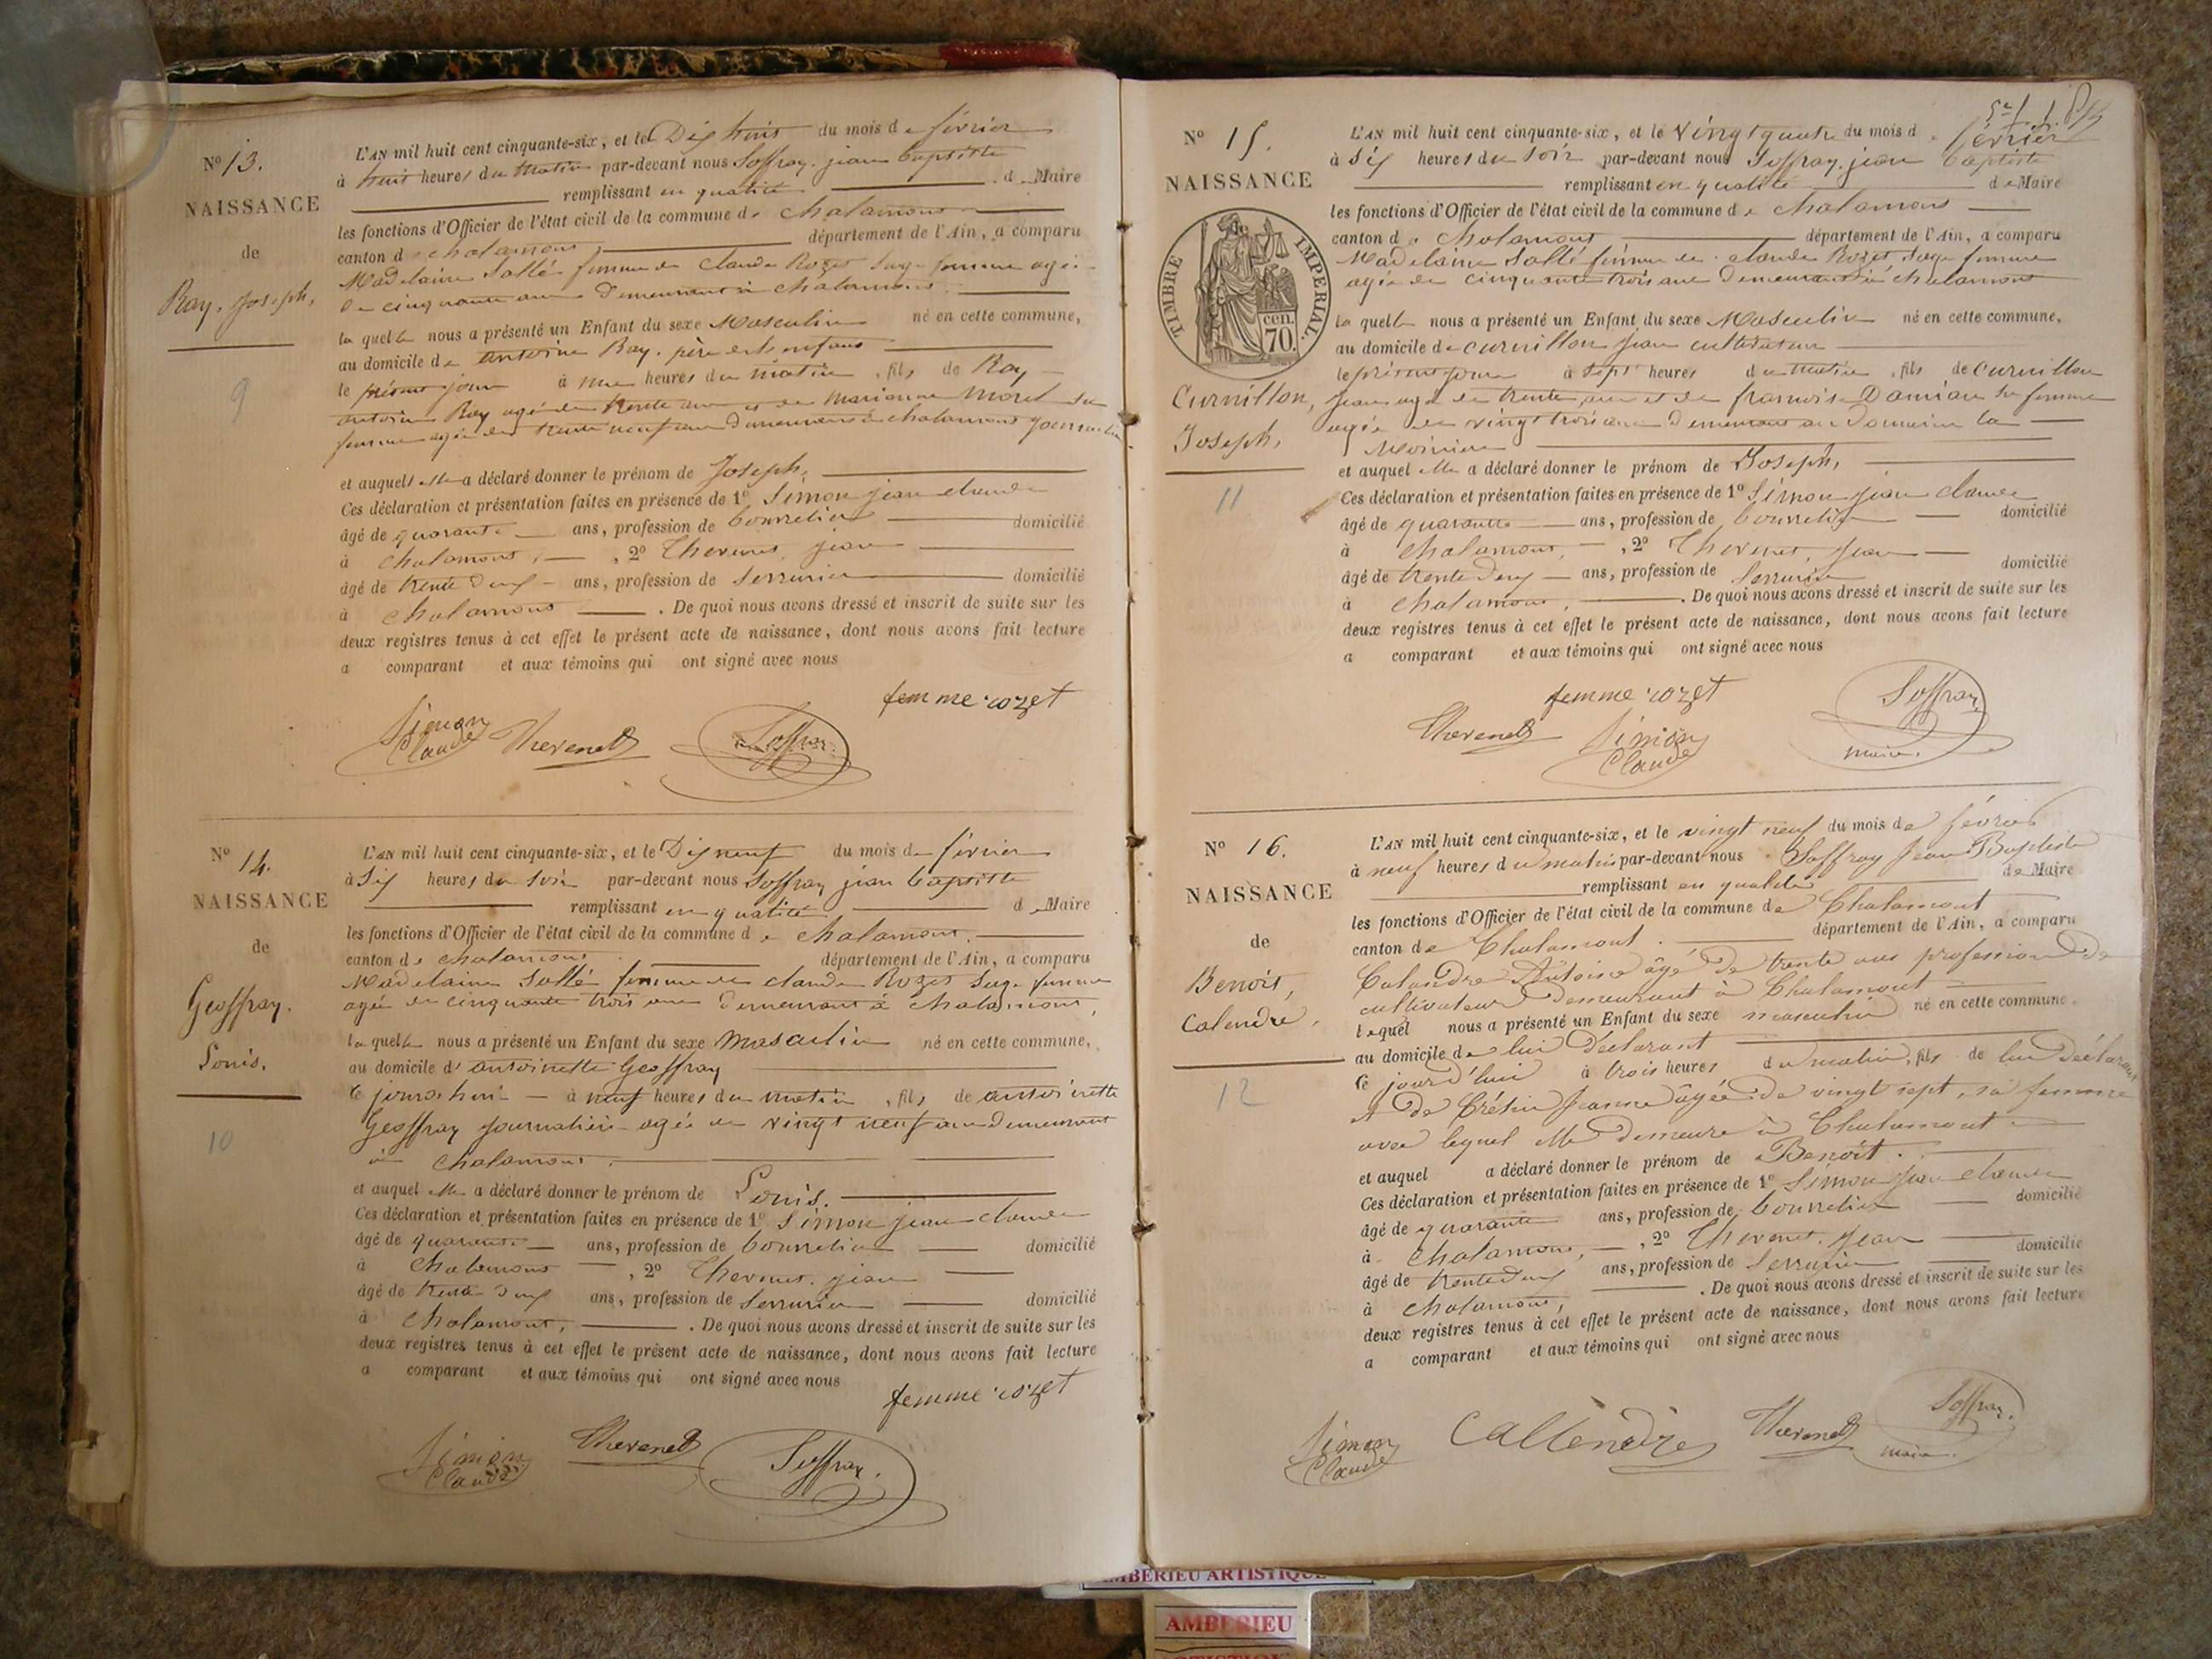 N° 13.
NAISSANCE
de
Ray, Joseph,
9
L'AN mil huit cent cinquante-six, et le Dix huit du mois de février
à huit heures du matin par-devant nous Soffray, jean baptiste
remplissant en qualité de Maire
les fonctions d'Officier de l'état civil de la commune de chalamont
canton de chalamont, département de l'Ain, a comparu
Madelaine Sallé femme de claude Rozet sage femme agée
de cinquante ans Demeurant à chalamont
la quelle nous a présenté un Enfant du sexe Masculin né en cette commune,
au domicile de antoine Ray, père de l'enfant
le présent jour à une heures du matin, fils de Ray
antoine Ray agé de trente ans et de marianne Morel sa
femme agée de trente neuf ans Demeurant à chalamont
et auquel elle a déclaré donner le prénom de Joseph,
Ces déclaration et présentation faites en présence de 1° Simon jean claude
âgé de quarante ans, profession de bourrelier domicilié
à chalamont, , 2° Thevenet, jean
âgé de trente deux ans, profession de serrurier domicilié
à chalamont . De quoi nous avons dressé et inscrit de suite sur les
deux registres tenus à cet effet le présent acte de naissance, dont nous avons fait lecture
a comparant et aux témoins qui ont signé avec nous
femme rozet
Simon Claude Thevenet Soffray
N° 14.
NAISSANCE
de
Geoffray.
Louis.
10
L'AN mil huit cent cinquante-six, et le Dix neuf du mois de février
à Six heures du soir par-devant nous Soffray jean baptiste
remplissant en qualité de Maire
les fonctions d'Officier de l'état civil de la commune de chalamont.
canton de chalamont département de l'Ain, a comparu
Madelaine Sallé femme de claude Rozet sage femme
agée de cinquante trois ans demeurant à chalamont,
la quelle nous a présenté un Enfant du sexe Masculin né en cette commune,
au domicile d'antoinette Geoffray
le jourd'hui à neuf heures du matin, fils de antoinette
Geoffray journalière agée de vingt neuf ans demeurant
à chalamont.
et auquel elle a déclaré donner le prénom de Louis.
Ces déclaration et présentation faites en présence de 1° Simon jean claude
âgé de quarante ans, profession de bourrelier domicilié
à chalamont , 2° Thevenet. jean
âgé de trente deux ans, profession de serrurier domicilié
à chalamont, . De quoi nous avons dressé et inscrit de suite sur les
deux registres tenus à cet effet le présent acte de naissance, dont nous avons fait lecture
a comparant et aux témoins qui ont signé avec nous
femme rozet
Simon Claude Thevenet Soffray.
N° 15.
NAISSANCE
TIMBRE IMPERIAL.
cen. 70.
Curnillon,
Joseph,
11
L'AN mil huit cent cinquante-six, et le vingt quatre du mois de février
à Six heures du soir par-devant nous Soffray, jean baptiste
remplissant en qualité de Maire
les fonctions d'Officier de l'état civil de la commune de chalamont
canton de chalamont département de l'Ain, a comparu
Madelaine Sallé femme de claude Rozet sage femme
agée de cinquante trois ans demeurant à chalamont
la quelle nous a présenté un Enfant du sexe Masculin né en cette commune,
au domicile de curnillon jean cultivateur
le présent jour à sept heures du matin, fils de curnillon
jean agé de trente ans et de françoise Damian sa femme
agée de vingt trois ans demeurant au domaine la
et auquel elle a déclaré donner le prénom de Joseph,
Ces déclaration et présentation faites en présence de 1° Simon jean claude
âgé de quarante ans, profession de bourrelier domicilié
à chalamont, , 2° Thevenet, jean
âgé de trente deux ans, profession de serrurier domicilié
à chalamont, . De quoi nous avons dressé et inscrit de suite sur les
deux registres tenus à cet effet le présent acte de naissance, dont nous avons fait lecture
a comparant et aux témoins qui ont signé avec nous
femme rozet Soffray
Thevenet Simon Claude maire.
N° 16.
NAISSANCE
de
Benoît,
Calendre,
12
L'AN mil huit cent cinquante-six, et le vingt neuf du mois de février
à neuf heures du matin par-devant nous Soffray Jean Baptiste
remplissant en qualité de Maire
les fonctions d'Officier de l'état civil de la commune de Chalamont
canton de Chalamont. département de l'Ain, a comparu
Calendre Antoine âgé de trente ans profession de
cultivateur demeurant à Chalamont
lequel nous a présenté un Enfant du sexe masculin né en cette commune.
au domicile de lui déclarant
le jourd'hui à trois heures du matin, fils de lui déclarant
et de Crétin Jeanne âgée de vingt sept, sa femme
avec lequel elle demeure à Chalamont
et auquel a déclaré donner le prénom de Benoît.
Ces déclaration et présentation faites en présence de 1° Simon jean claude
âgé de quarante ans, profession de bourrelier domicilié
à chalamont, , 2° Thevenet. jean
âgé de trente deux ans, profession de serrurier domicilié
à chalamont, . De quoi nous avons dressé et inscrit de suite sur les
deux registres tenus à cet effet le présent acte de naissance, dont nous avons fait lecture
a comparant et aux témoins qui ont signé avec nous
Simon Claude Callendre Thevenet Soffray. maire.
AMBERIEU ARTISTIQUE
AMBERIEU